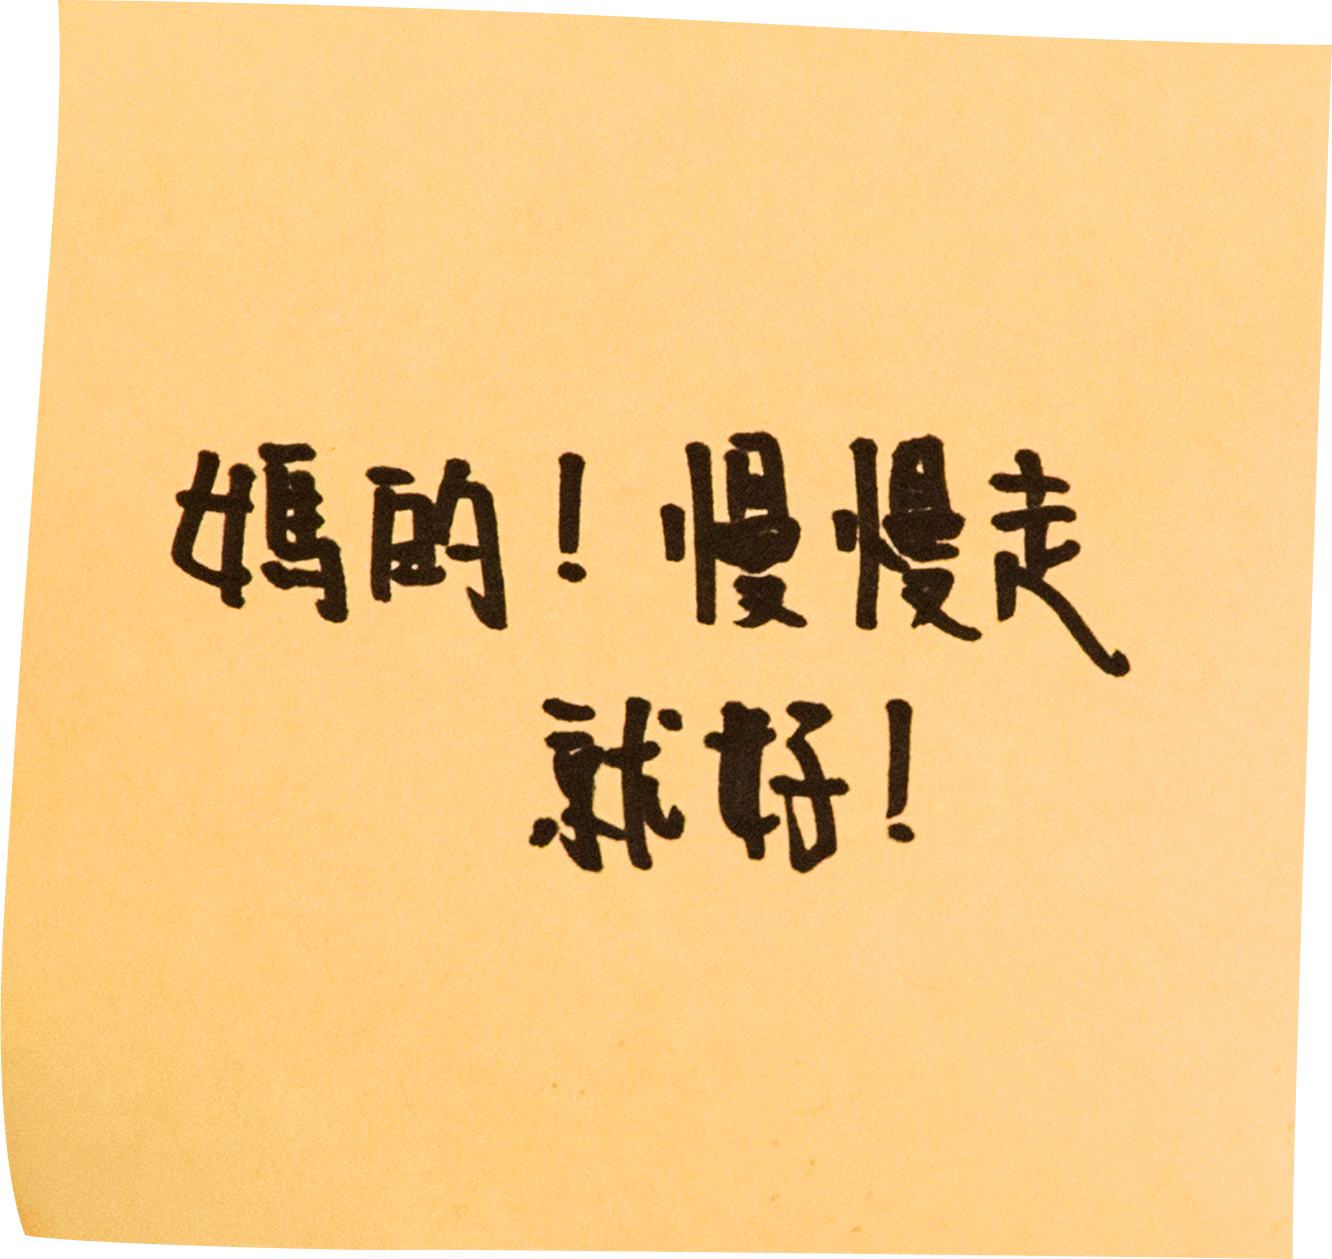 媽的！慢慢走
就好！